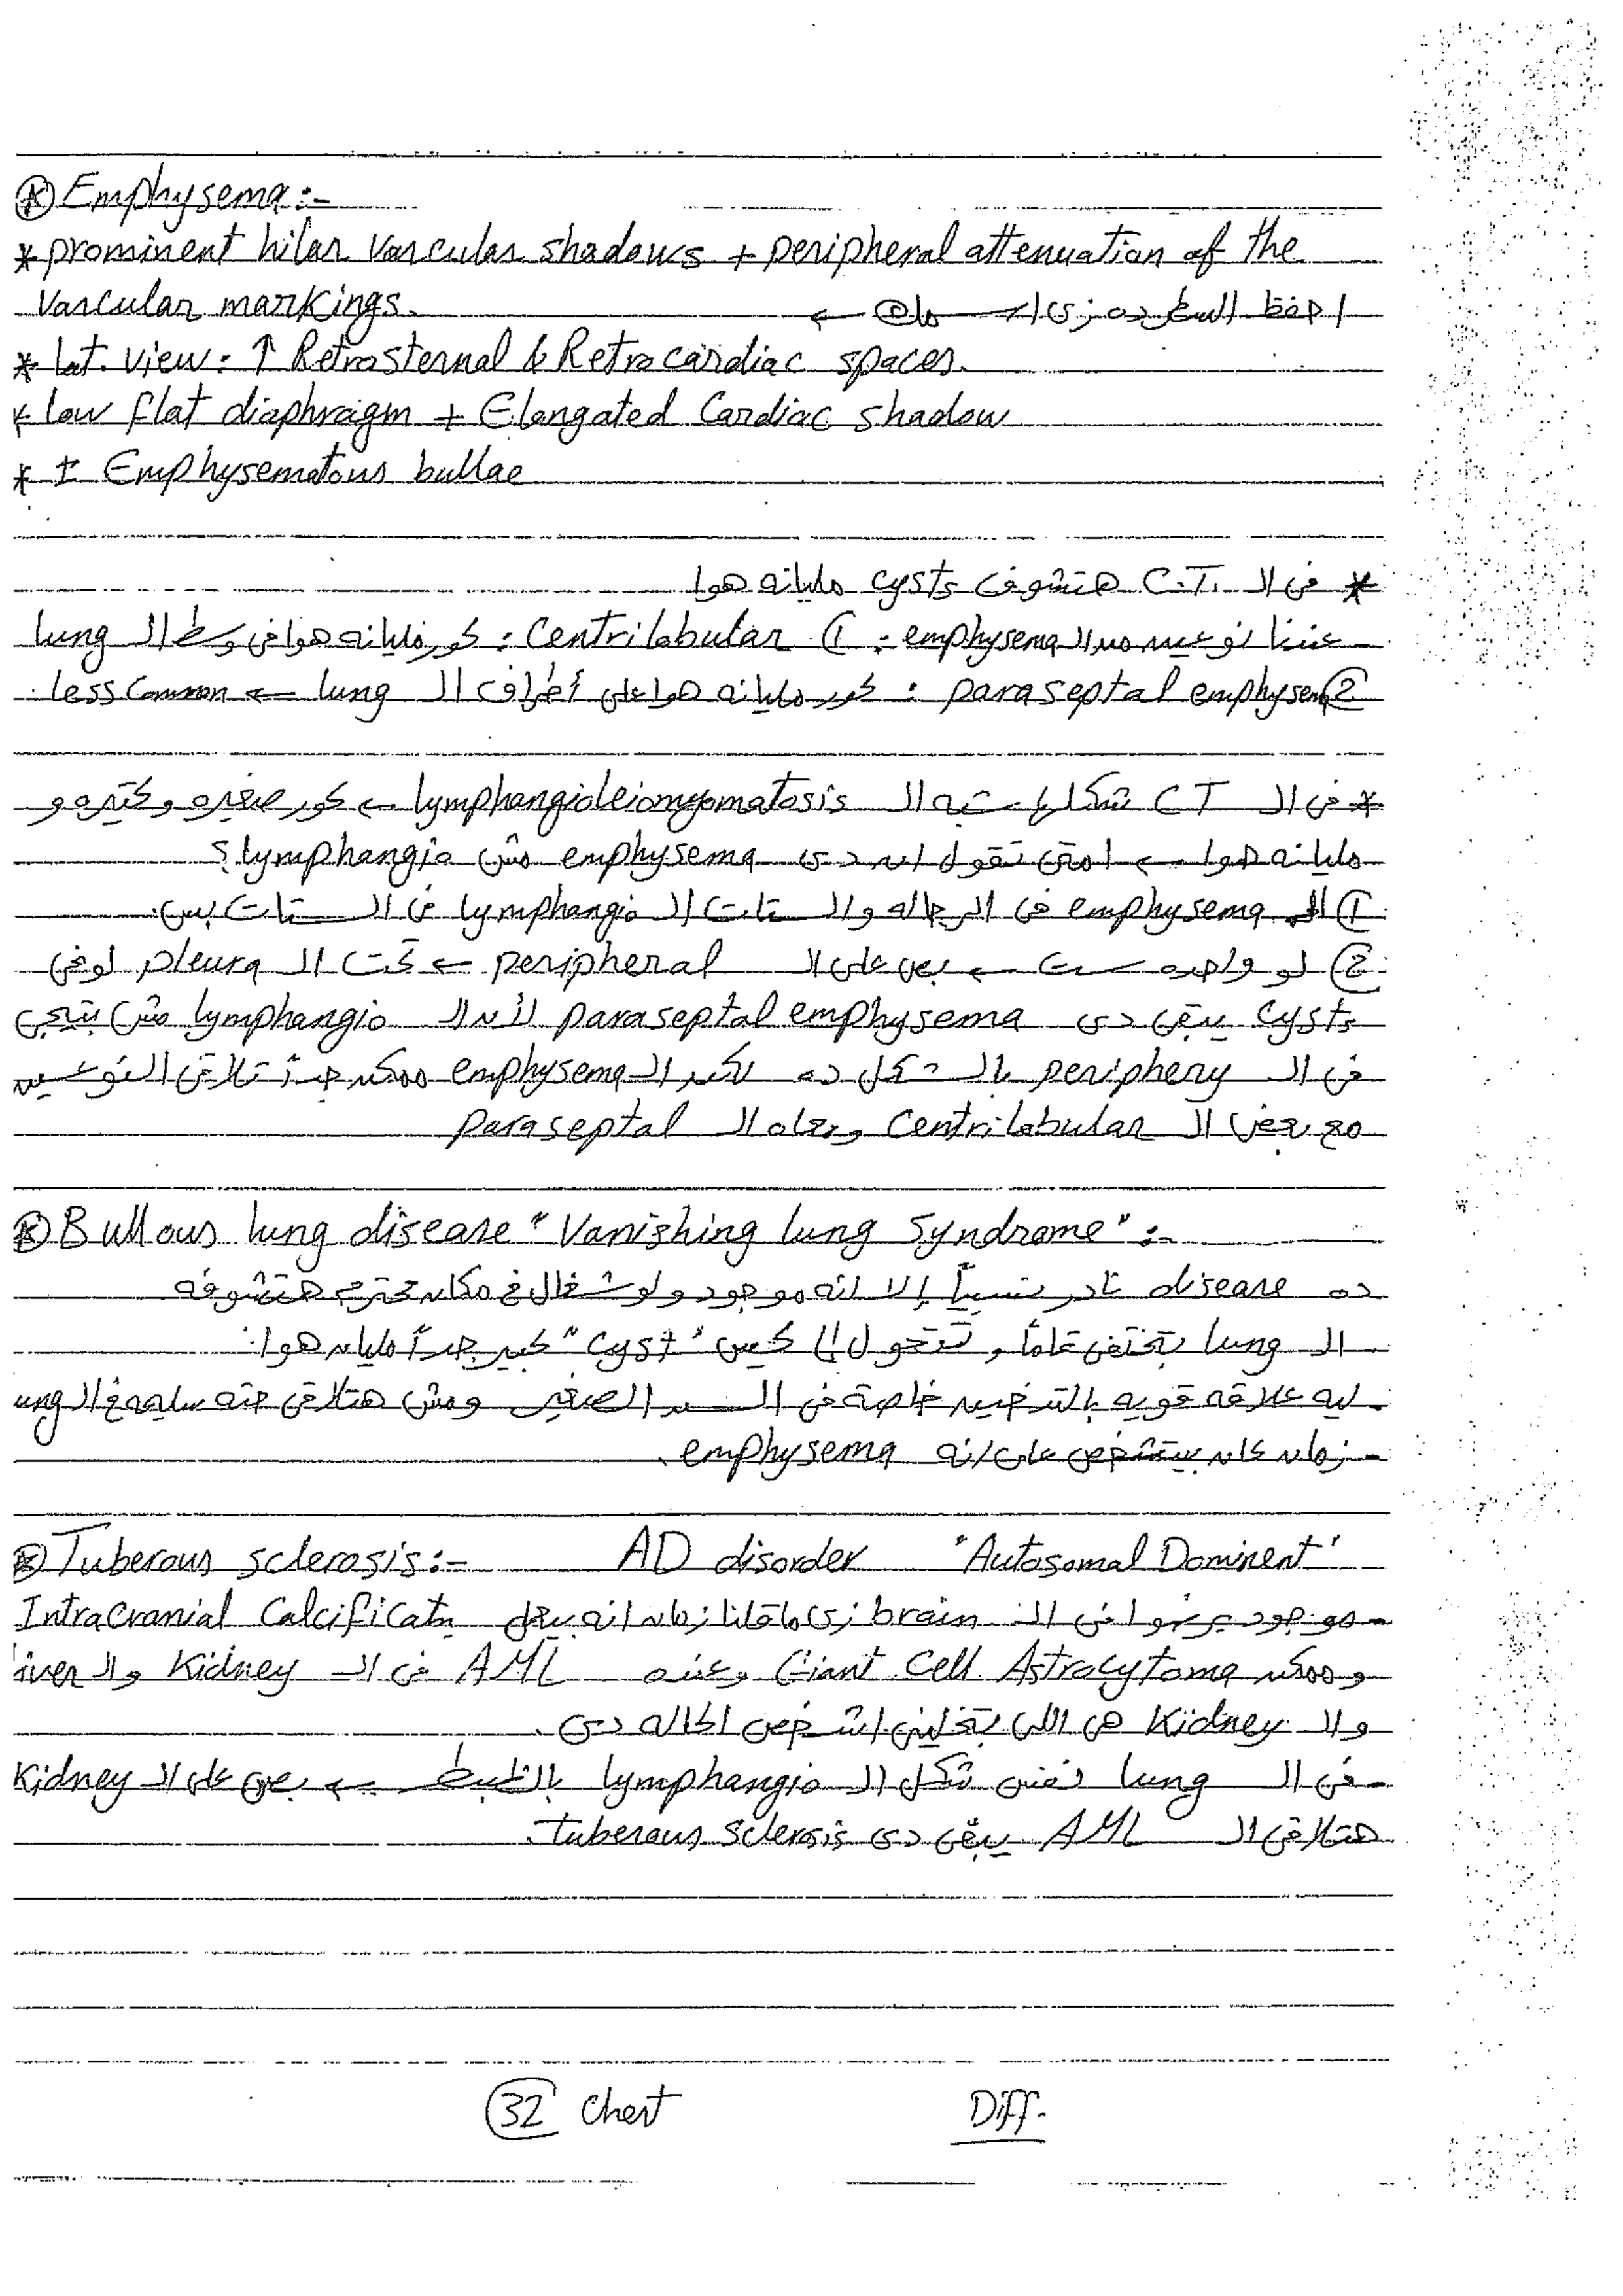 * Emphysema :-
* prominent hilar vascular shadows + peripheral attenuation of the
vascular markings.
احفظ السطر ده زى اسمك ←
* lat. view : ↑ Retrosternal & Retrocardiac spaces.
* low flat diaphragm + Elongated Cardiac shadow
* ± Emphysematous bullae
* فى الـ C.T. هتشوف cysts مليانه هوا
- عندنا نوعين من الـ emphysema : ① Centrilobular : كور مليانه هوا فى وسط الـ lung
② paraseptal emphysema : كور مليانه هوا على أطراف الـ lung ← less common.
* فى الـ CT شكلها شبه الـ lymphangioleiomyomatosis ← كور صغيره وكتيره و
مليانه هوا ← امتى تقول ان دى emphysema مش lymphangio ؟
① الـ emphysema فى الرجاله والستات الـ lymphangio فى الستات بس.
② لو واحده ست ← بص على الـ peripheral ← تحت الـ pleura لو فى
cysts يبقى دى paraseptal emphysema لأن الـ lymphangio مش بتيجى
فى الـ periphery بالشكل ده لكن الـ emphysema ممكن جداً تلاقى النوعين
مع بعض الـ Centrilobular ومعاه الـ paraseptal
* Bullous lung disease "Vanishing lung Syndrome" :-
ده disease نادر نسبياً إلا انه موجود ولو شغال فى مكان محترم هتشوفه
- الـ lung بتختفى تماماً و تتحول إلى كيس "cyst" كبير جداً مليان هوا.
- ليه علاقه قويه بالتدخين خاصة فى السن الصغير ومش هتلاقى حته سليمه فى الـ lung
- زمان كان بيتشخص على انه emphysema.
* Tuberous sclerosis :- AD disorder "Autosomal Dominent"
- موجود برضوا فى الـ brain زى ما قلنا زمان انه بيعمل Intracranial Calcificatn
وممكن Giant Cell Astrocytoma وعنده AML فى الـ Kidney والـ liver
والـ Kidney هى اللى بتخلينى اشخص الحاله دى.
- فى الـ lung نفس شكل الـ lymphangio بالظبط ← بص على الـ Kidney
هتلاقى الـ AML يبقى دى tuberous sclerosis.
32 Chest Diff.